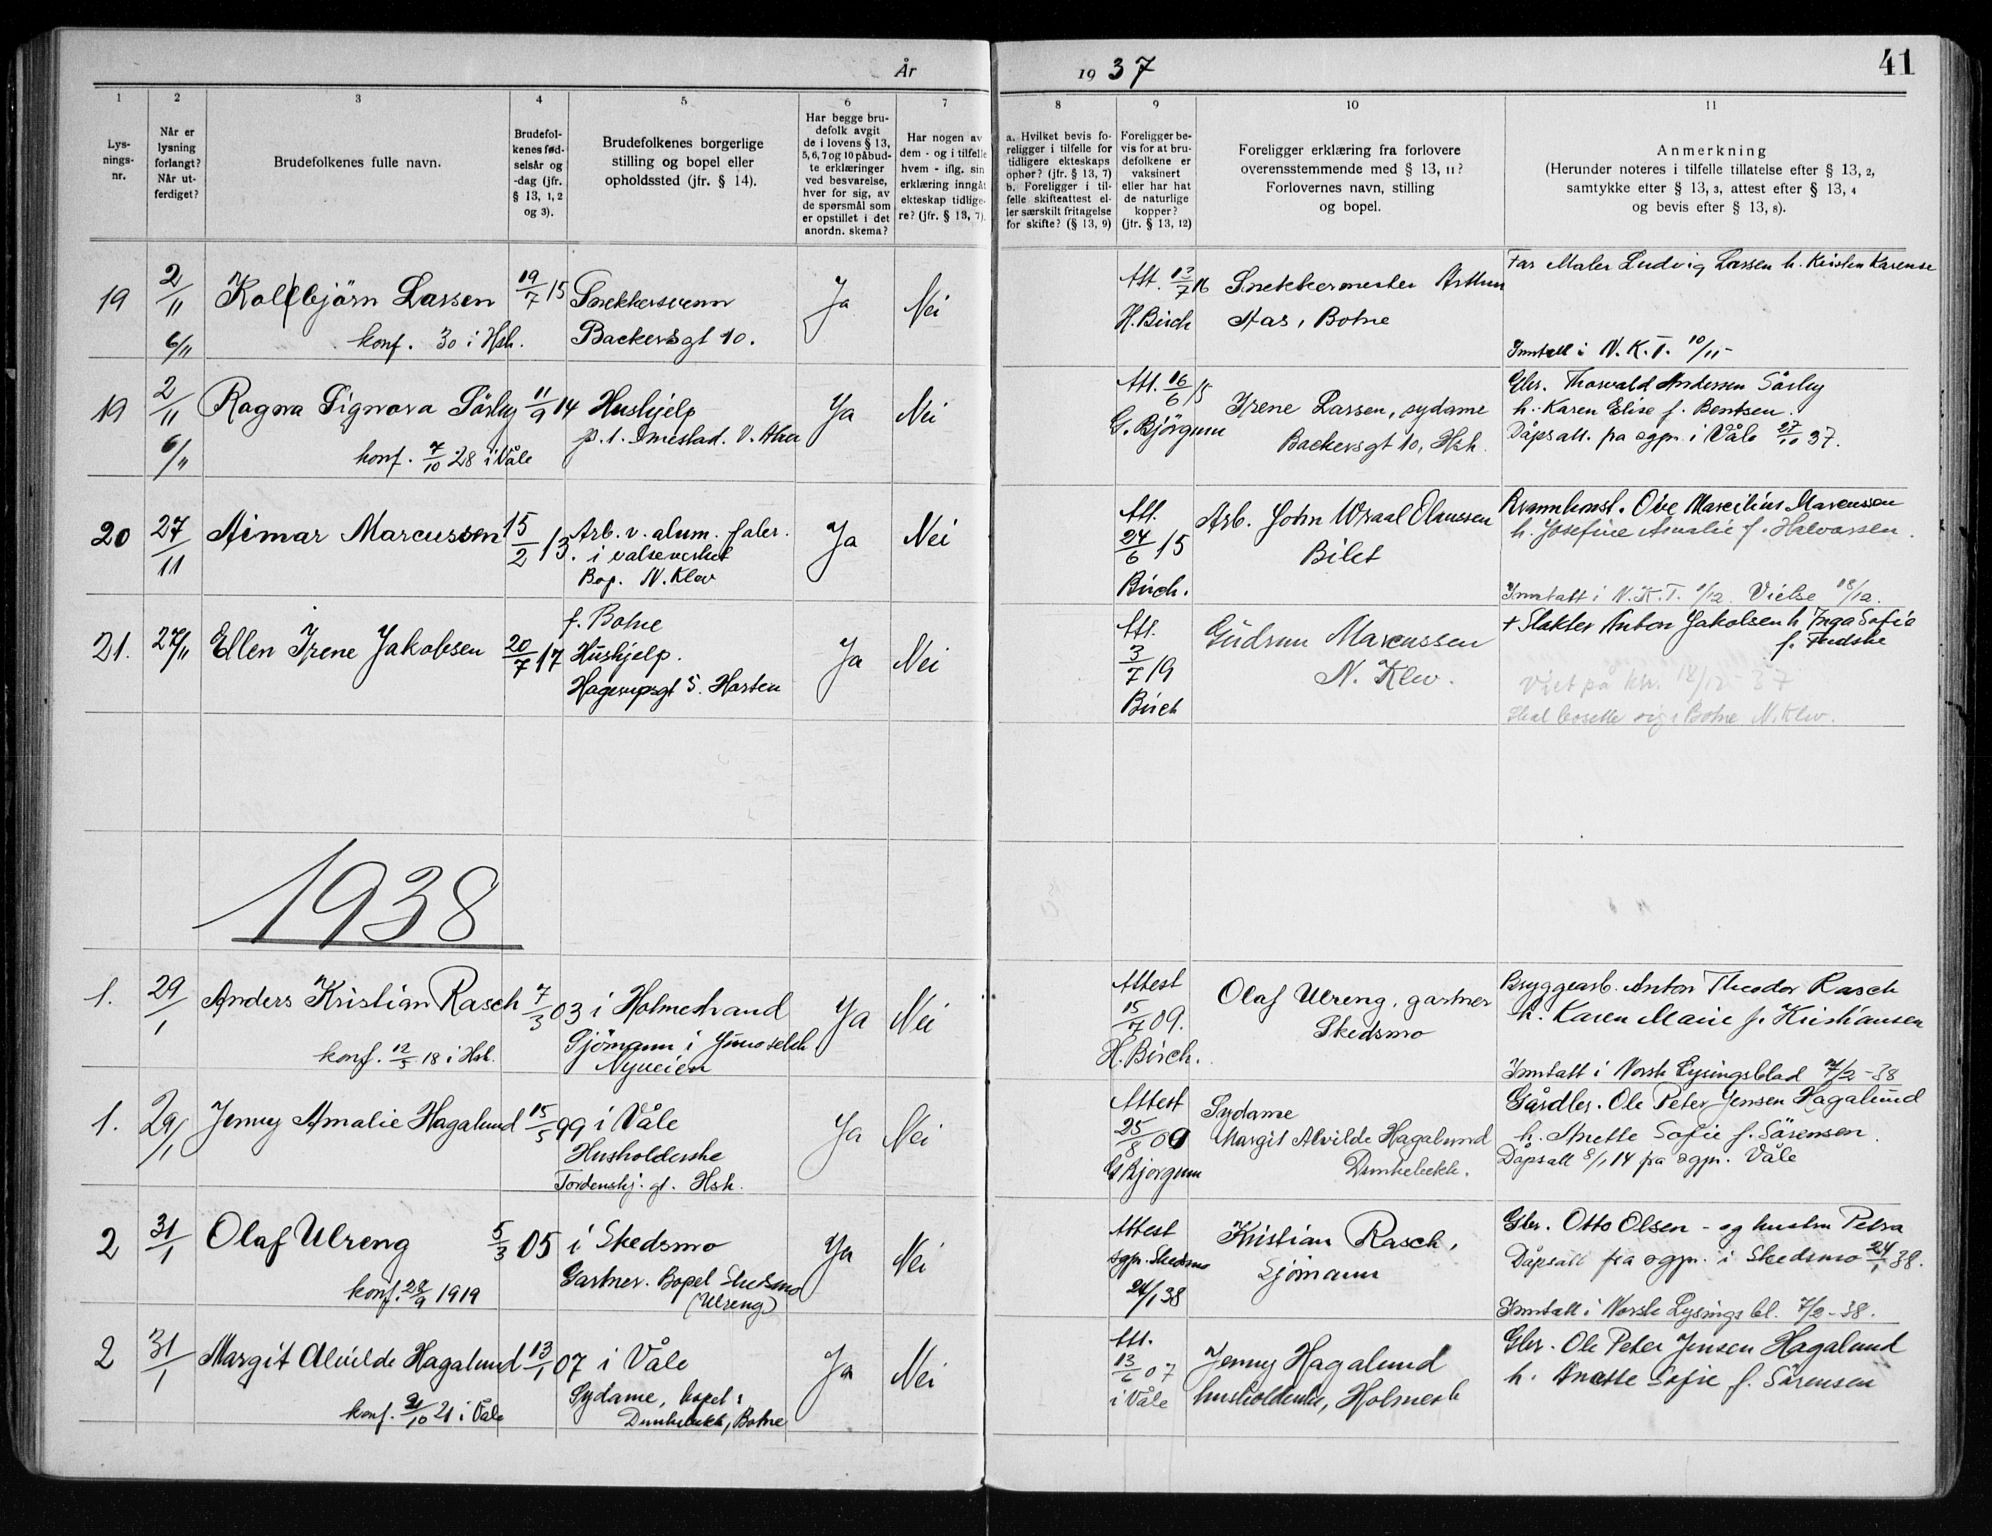 År 19 37
41
1 2 3 4 5 6 7 8 9 10 11
Lys-
nings-
nr.
Når er
lysning
forlangt?
Når ut-
ferdiget?
Brudefolkenes fulle navn.
Brudefol-
kenes fød-
selsår og
-dag (jfr.
§ 13, 1, 2
og 3).
Brudefolkenes borgerlige
stilling og bopel eller
opholdssted (jfr. § 14).
Har begge bru-
defolk avgit
de i lovens § 13,
5, 6, 7 og 10 påbud-
te erklæringer
ved besvarelse,
hver for sig, av
de spørsmål som
er opstillet i det
anordn. skema?
Har nogen av
dem - og i tilfelle
hvem - iflg. sin
erklæring inngåt
ekteskap tidlige-
re? (jfr. § 13, 7).
a. Hvilket bevis fo-
religger i tilfelle for
tidligere ekteskaps
ophør? (jfr. § 13, 7)
b. Foreligger i til-
felle skifteattest el-
ler særskilt fritagelse
for skifte? (§ 13, 9)
Foreligger be-
vis for at bru-
defolkene er
vaksinert
eller har hat
de naturlige
kopper?
(jfr. § 13, 12)
Foreligger erklæring fra forlovere
overensstemmende med § 13, 11?
Forlovernes navn, stilling
og bopel.
Anmerkning
(Herunder noteres i tilfelle tillatelse efter § 13, 2,
samtykke efter § 13, 3, attest efter § 13, 4
og bevis efter § 13, 8).
19 2/11 Kolbjörn Larsen 19/7 15 Snekkersvenn Ja Nei Att. 13/7 16 Snekkermester Arthur Far Maler Ludvig Larsen h. Kristen Karense
6/11 konf. 30 i Hsh. Backersgt 10. H. Birch Aas, Botne
Inntatt i N. K. T. 10/11
19 2/11 Ragna Signora Sörby 11/9 14 Hushjelp Ja Nei Att. 16/6 15 Irene Larsen, sydame Gbr. Thorvald Andersen Sörby
6/11 konf. 7/10 28 i Våle G. Björgum Backersgt 10, Hsh. h. Karen Elise f. Bentsen.
Dåpsatt. fra sogpr. i Våle 27/10 37.
20 27/11 Aimar Marcussen 15/2 13. Arb. v. alum. faler. Ja Nei Att. 24/6 15 Arb. John Wraal Olaussen Ove Marcilius Marcussen
i valseverket Birch. Bilet h. Josefine Amalie f. Halvorsen.
Bop. N. Klev
Inntatt i N. K. T. 1/12. Vielse 18/12.
21. 27/11 Ellen Irene Jakobsen 20/7 17 f. Botne Ja Nei Att. 3/7 19 Gudrun Marcussen + Slakter Anton Jakobsen h Inga Sofie
Hushjelp. Birch N. Klev.
Hagerupsgt 5. Horten
Viet på 18/12 - 37
Skal bosette sig i Botne N. Klev.
1938
1. 29/1 Anders Kristian Rasch 7/3 03 i Holmestrand Ja Nei Attest 15/7 09. Olaf Ulreng, gartner Bryggearb. Anton Theodor Rasch
konf. 12/5 18 i Hsl. Sjömann i H. Birch. Skedsmo h. Karen Marie f. Kristiansen
Nyveien
Inntatt i Norsk Lysingsblad 7/2 - 38
1. 29/1 Jenny Amalie Hagalund 15/5 99 i Våle Ja Nei Attest 25/8 00 Sydame Gårdbr. Ole Peter Jensen Hagalund
Husholderske G Bjorgum Margit Alvilde Hagalund h. Anette Sofie f. Sörensen.
Tordenskj. gt. Hsh. Dunkebekk. Dåpsatt 8/1 14 fra sogpr. Våle
2 31/1 Olaf Ulreng 5/3 05 i Skedsmo Ja Nei Attest Kristian Rasch, Gbr. Otto Olsen - og hustru Petra
konf. 28/9 1919 Gartner. Bopel Skedsmo sgpr. Skedsmo Sjömann Dåpsatt fra sogpr. i Skedsmo 24/1 38.
(Ulreng) 24/1 38
Inntatt i Norsk Lysings bl. 7/2 - 38.
2 31/1 Margit Alvilde Hagalund 13/1 07 i Våle Ja Nei Att. 13/6 07 Jenny Hagalund Gbr. Ole Peter Jensen Hagalund
konf. 2/10 21 i Våle Sydame, bopel: i Våle husholderske, Holmestr h. Anette Sofie f. Sörensen
Dunkebekk, Botne